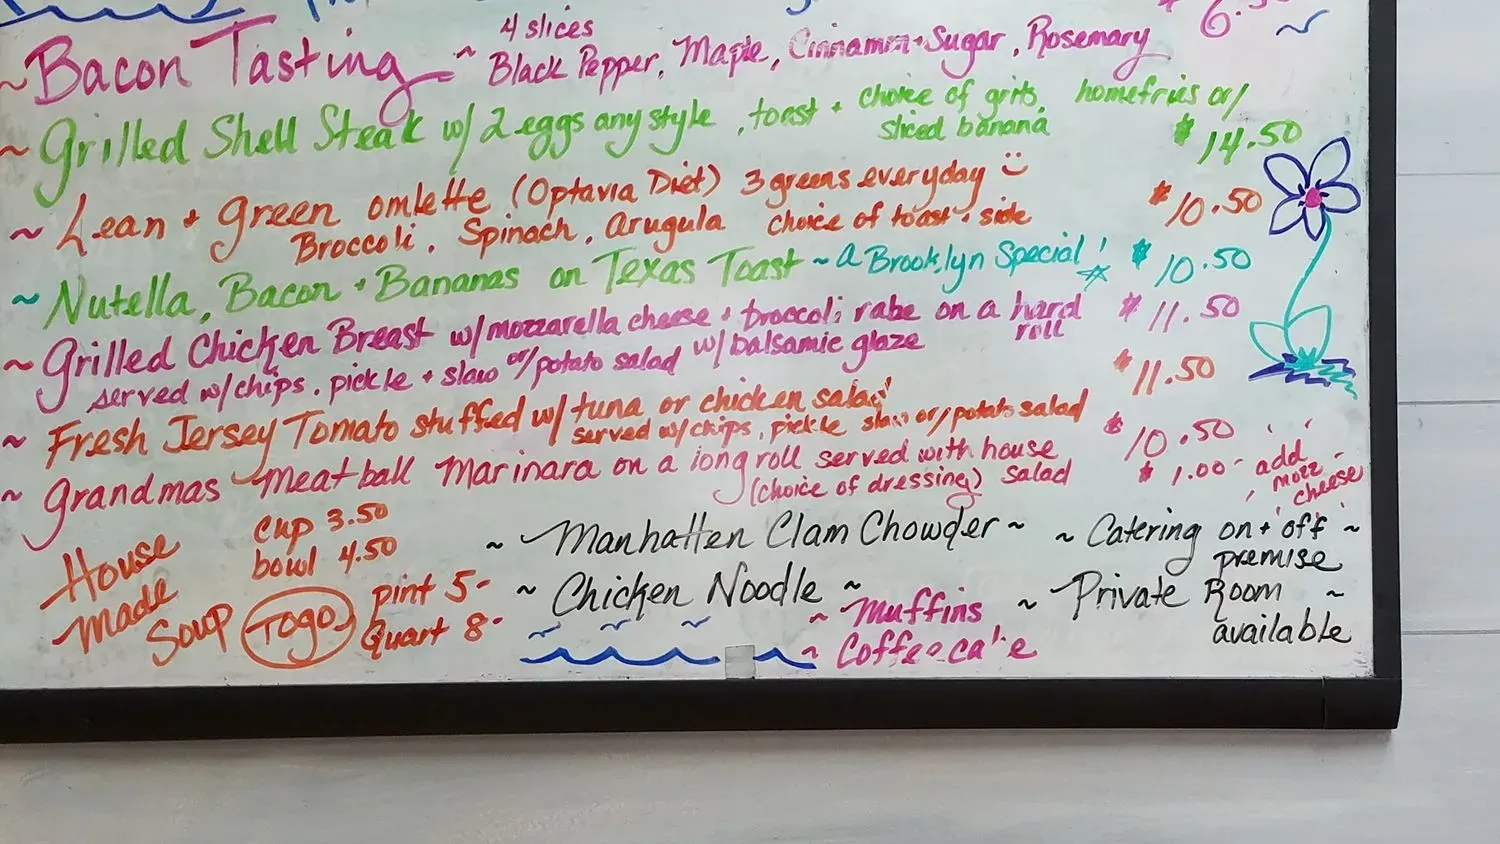 4 slices
~ Bacon Tasting ~ Black Pepper, Maple, Cinnamon + Sugar, Rosemary
~ Grilled Shell Steak w/ 2 eggs any style, toast + choice of grits, homefries or/
sliced banana $14.50
~ Lean + green omlette (Optavia Diet) 3 greens everyday $10.50
Broccoli, Spinach, Arugula choice of toast + side
~ Nutella, Bacon + Bananas on Texas Toast ~ a Brooklyn Special! $10.50
~ Grilled Chicken Breast w/ mozzarella cheese + broccoli rabe on a hard roll $11.50
served w/ chips, pickle + slaw or/potato salad w/ balsamic glaze
~ Fresh Jersey Tomato stuffed w/ tuna or chicken salad $11.50
served w/ chips, pickle slaw or/potato salad
~ Grandmas Meatball Marinara on a long roll served with house salad $10.50
(choice of dressing) $1.00- add mozz- cheese
House Made Soup
cup 3.50
bowl 4.50
Togo
pint 5-
Quart 8-
~ Manhatten Clam Chowder ~
~ Chicken Noodle ~
~ Muffins
~ Coffeecake
~ Catering on + off ~
premise
~ Private Room ~
available